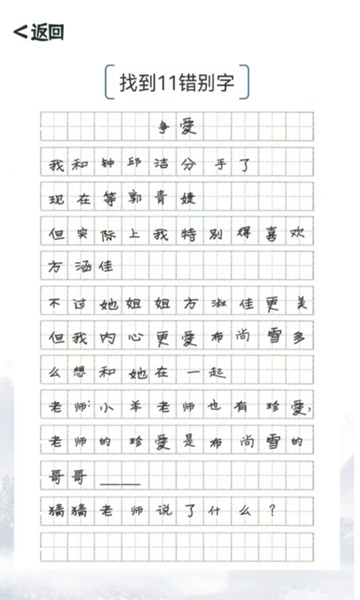 <返回
找到11错别字
争爱
我和钟邱洁分手了
现在等郭青婕
但实际上我特别得喜欢
方涵佳
不过她姐姐方淑佳更美
但我内心更爱布尚雪多
么想和她在一起
老师:小羊老师也有珍爱,
老师的珍爱是布尚雪的
哥哥____
猜猜老师说了什么?